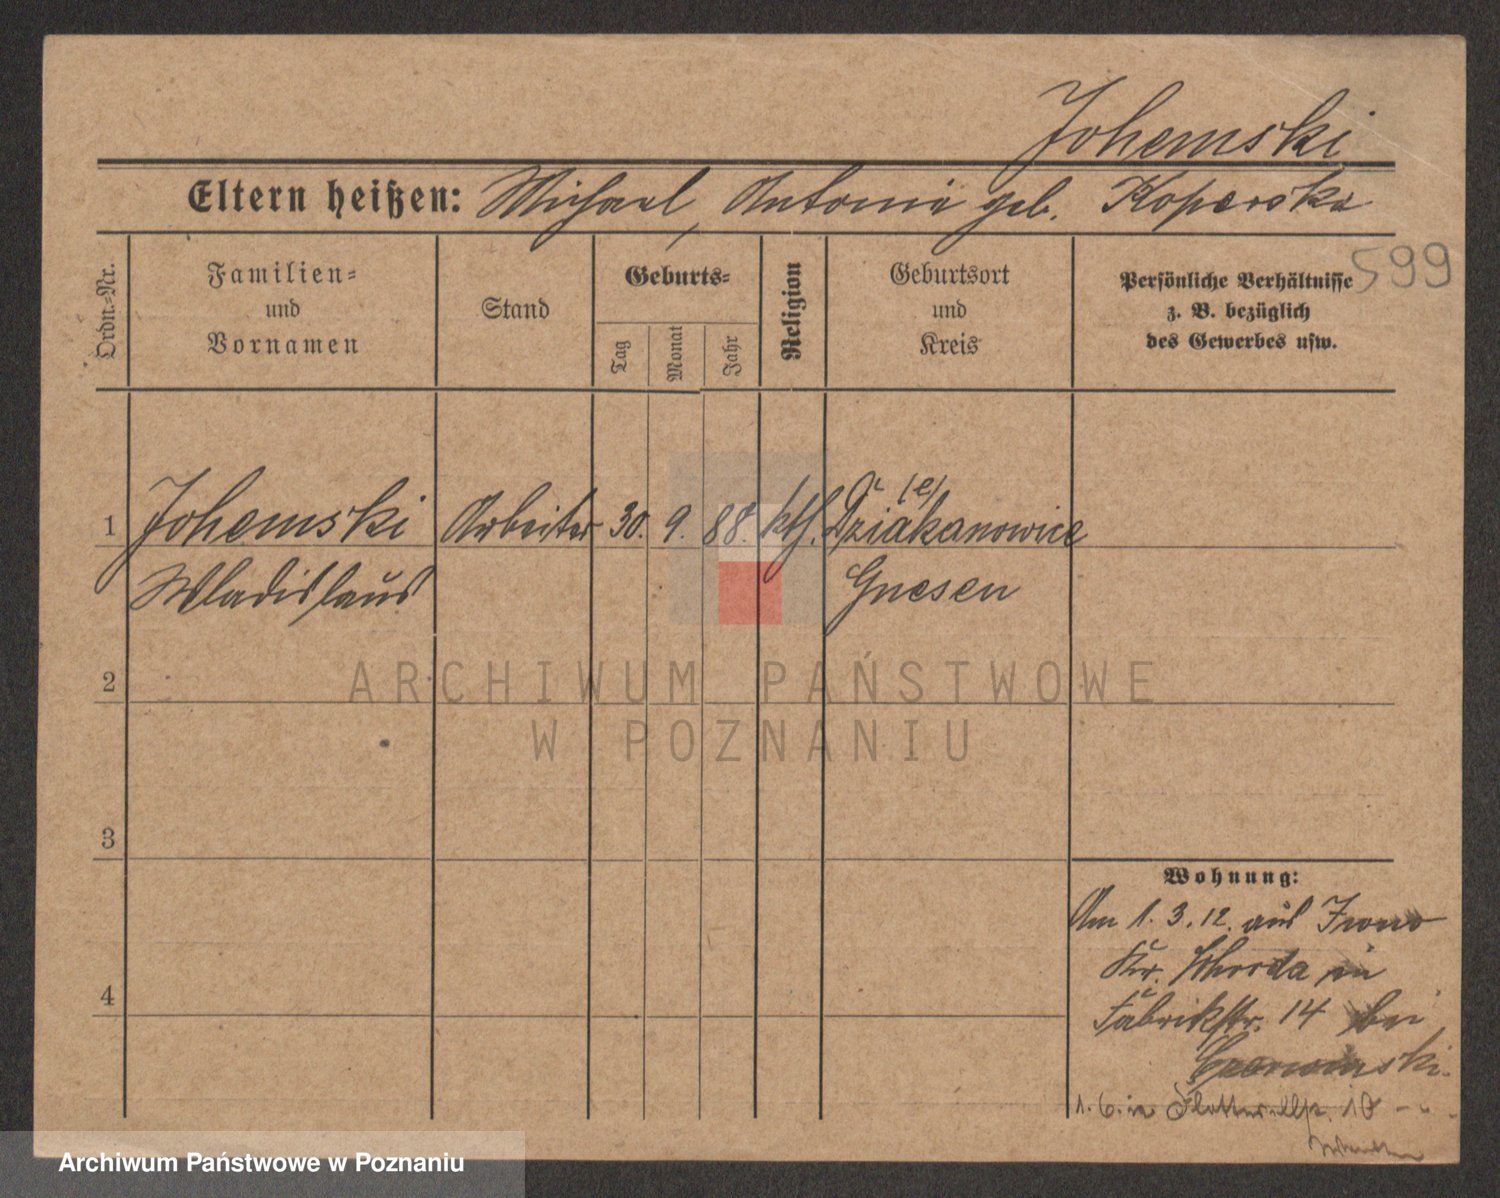 Johemski
Eltern heißen: Michael, Antonie geb. Koperska
599
Ordn.-Nr.
Familien-
und
Vornamen
Stand
Geburts-
Tag
Monat
Jahr
Religion
Geburtsort
und
Kreis
Persönliche Verhältnisse
z. B. bezüglich
des Gewerbes usw.
1 Johemski Arbeiter 30. 9. 88. kth. Dziakanowice (e)
Wladislaus Gnesen
2
3
4
Wohnung:
Am 1. 3. 12. aus Iwno
Kr. Schroda in
Fabrikstr. 14 bei
1. 6. in 10
ARCHIWUM PAŃSTWOWE
W POZNANIU
Archiwum Państwowe w Poznaniu